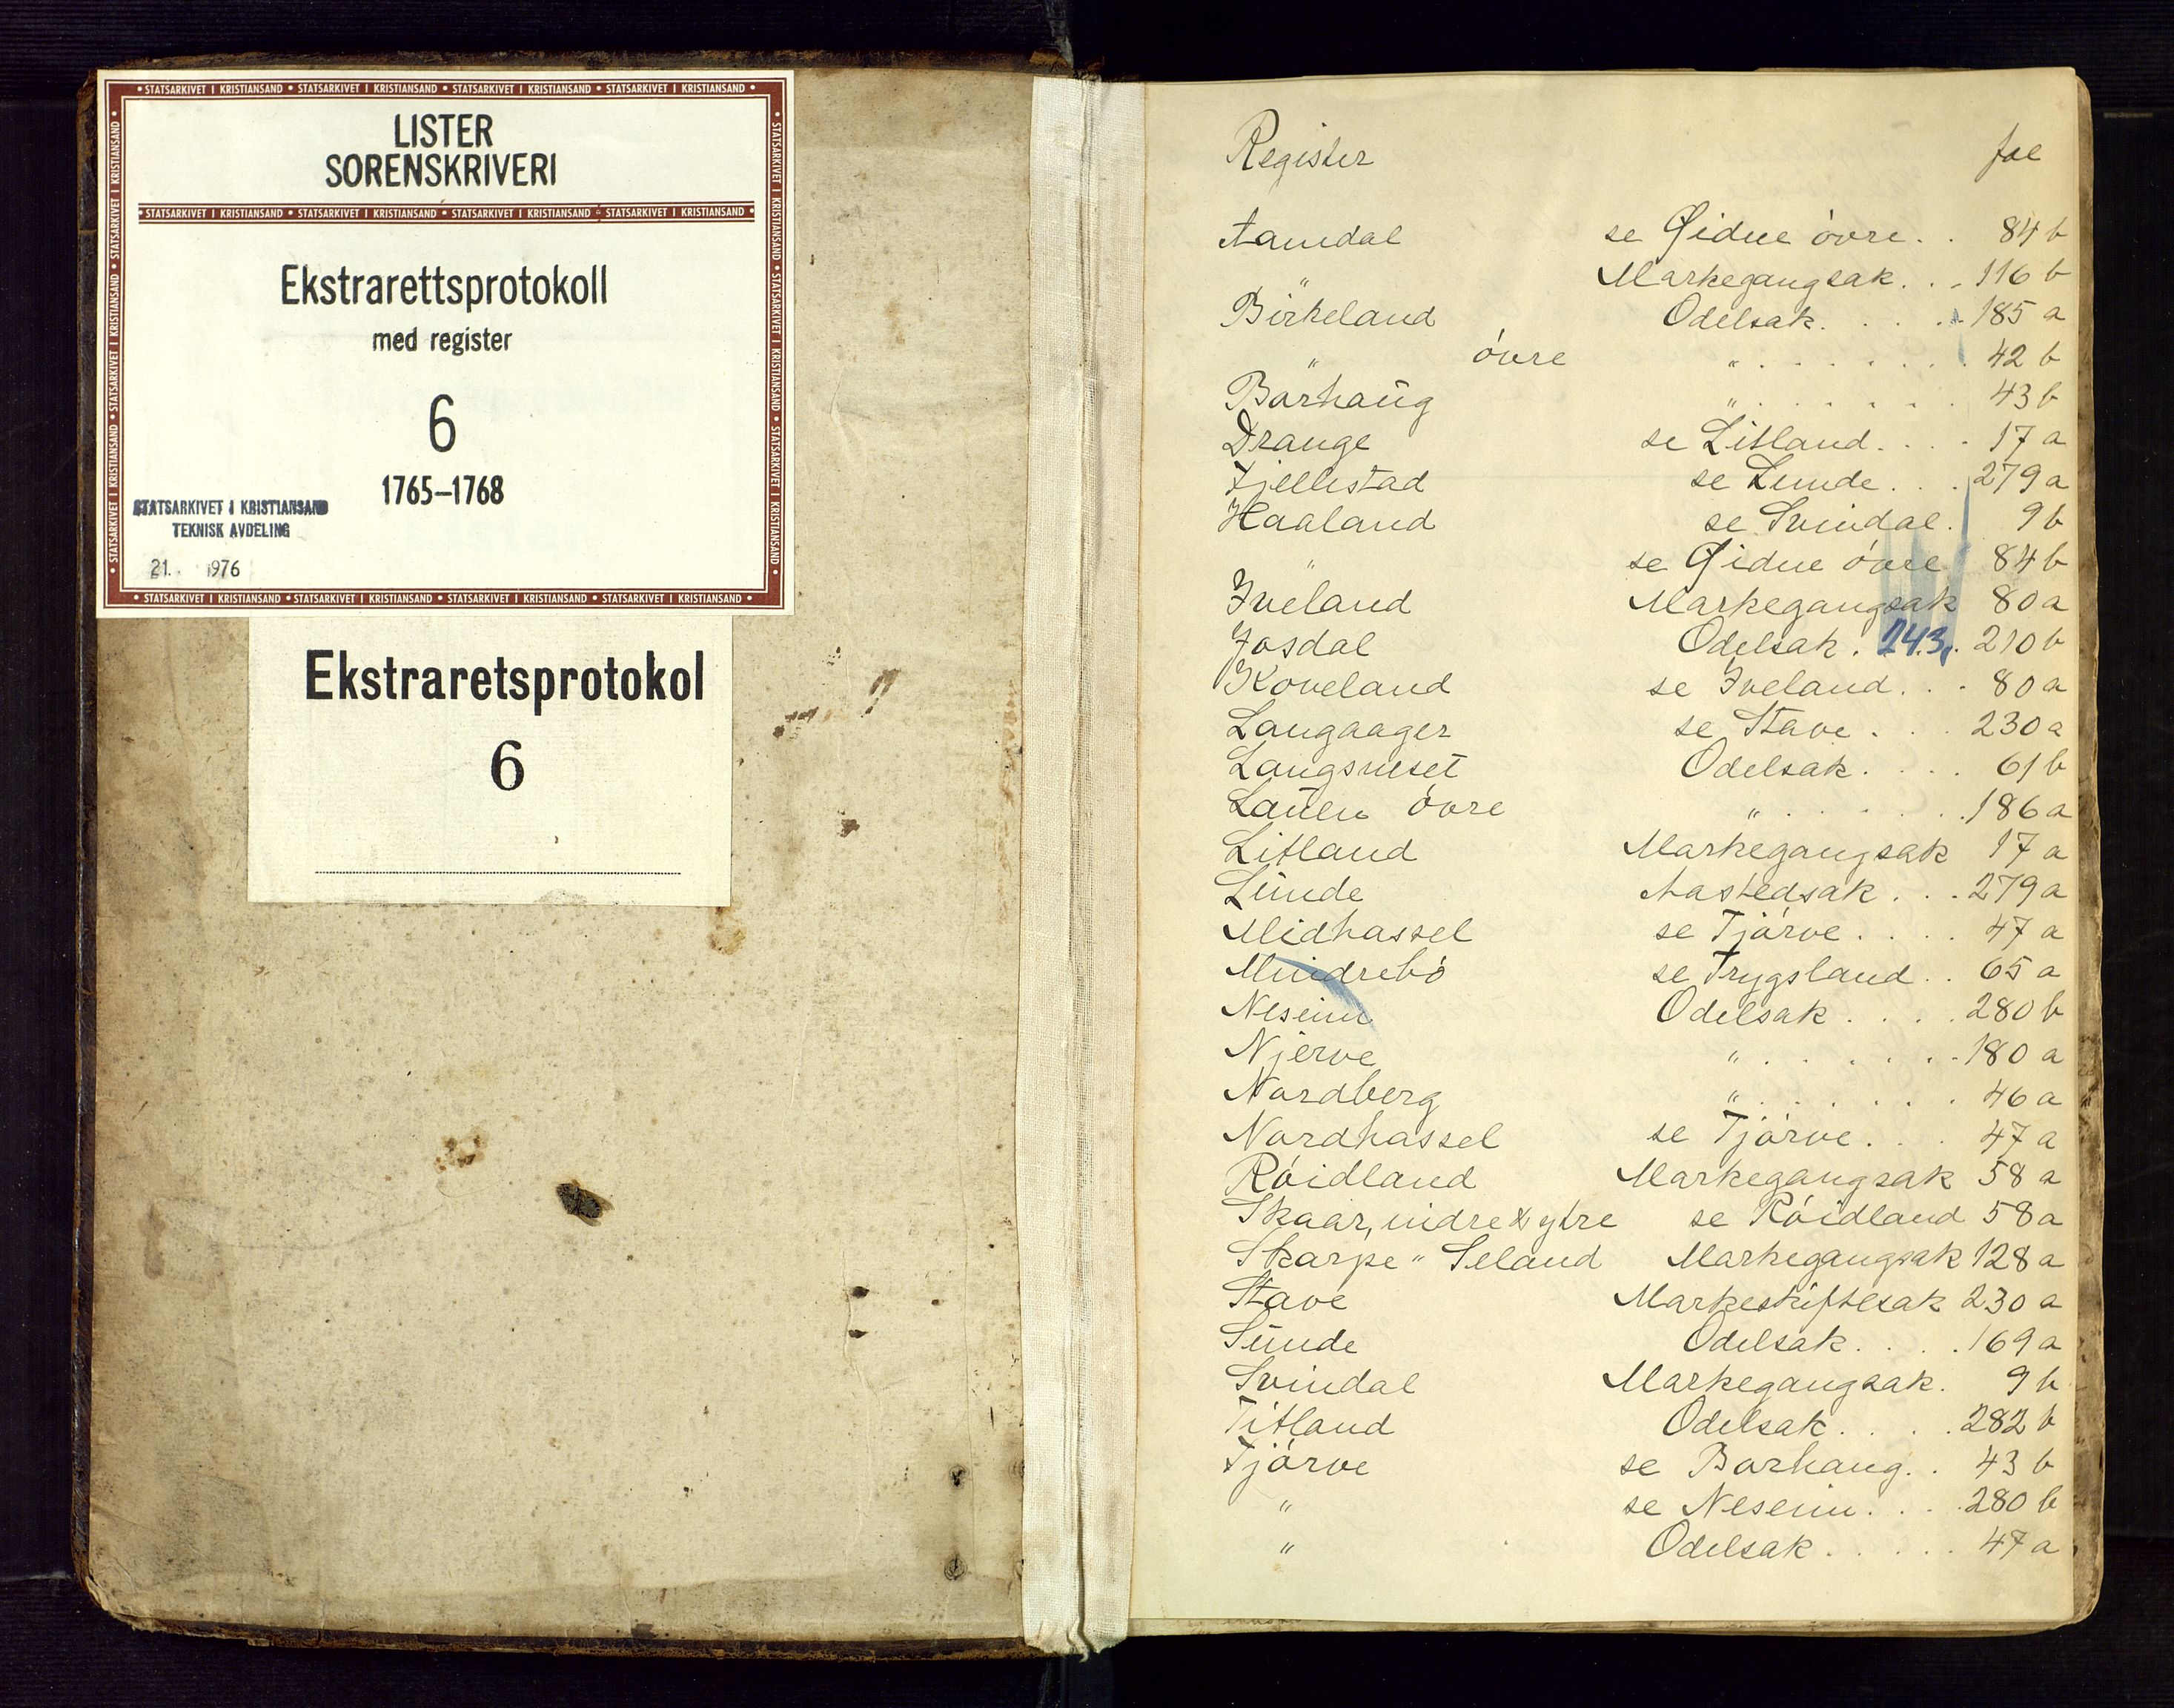 LISTER
SORENSKRIVERI
STATSARKIVET I KRISTIANSAND • STATSARKIVET I KRISTIANSAND • STATSARKIVET I KRISTIANSAND • STATSARKIVET I KRISTIANSAND
Ekstrarettsprotokoll
med register
6
1765–1768
STATSARKIVET I KRISTIANSAND
TEKNISK AVDELING
21. 1976
Ekstraretsprotokol
6
Register fol
Aamdal se Eidne övre . . 84 b
" Markegangsak . . . 116 b
Birkeland Odelsak . . . . 185 a
" övre " . . . . . . 42 b
Barhaug " . . . . . . 43 b
Drange se Litland . . . . 17 a
Fjellestad se Lunde . . . 279 a
Haaland se Svindal . 9 b
" se Eidne övre 84 b
Iveland Markegangsak 80 a
Josdal Odelsak . 243, . 210 b
Koveland se Iveland . . . 80 a
Langaager se Stave . . . 230 a
Langsneset Odelsak . . . . 61 b
Lauen övre " . . . . . . 186 a
Litland Markegangsak 17 a
Lunde Aastedsak . . . 279 a
Midhassel se Tjörve . . . . 47 a
Mindrebö se Trygsland . . 65 a
Neseim Odelsak . . . . 280 b
Njerve " . . . . . . 180 a
Nordberg " . . . . . . 46 a
Nordhassel se Tjörve . . . 47 a
Röidland Markegangsak 58 a
Skaar, indre & ytre se Röidland 58 a
Skarpe " Seland Markegangsak 128 a
Stave Markeskiftesak 230 a
Sunde Odelsak . . . . 169 a
Svindal Markegangsak . 9 b
Titland Odelsak . . . . 282 b
Tjörve se Barhaug . . 43 b
" se Neseim . . . 280 b
" Odelsak . . . . . 47 a